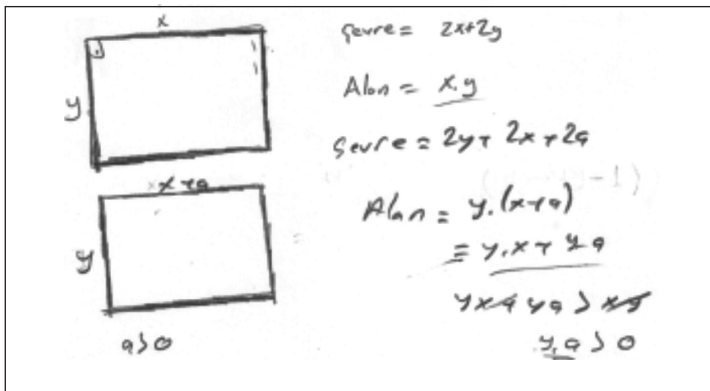 x
y
Çevre = 2x+2y
Alan = x.y
Çevre = 2y+2x+2a
x+a
y
a>0
Alan = y.(x+a)
= y.x+y.a
yx+ya>xy
y.a>0